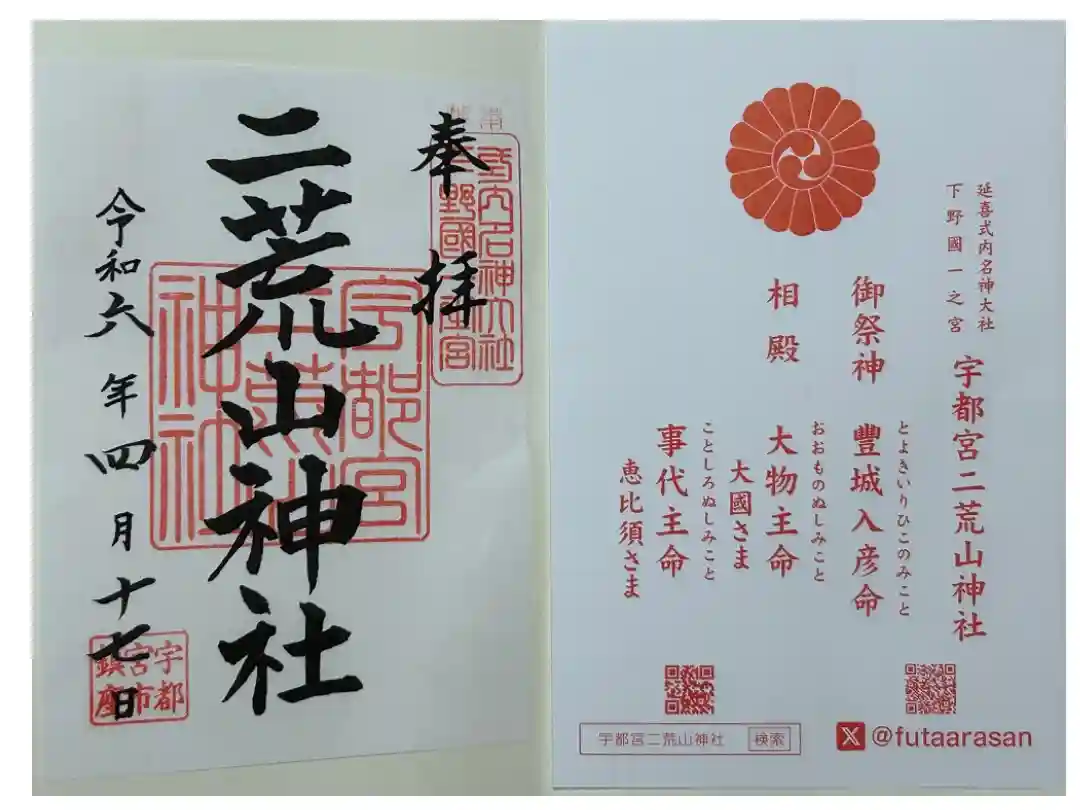 奉拝
二荒山神社
令和六年四月十七日
式内名神大社
宇都宮
神社
宇都
宮市
鎮座
延喜式内名神大社
下野國一之宮
宇都宮二荒山神社
御祭神
とよきいりひこのみこと
豐城入彦命
相殿
おおものぬしみこと
大物主命
大國さま
ことしろぬしみこと
事代主命
恵比須さま
宇都宮二荒山神社 検索
X @futaarasan